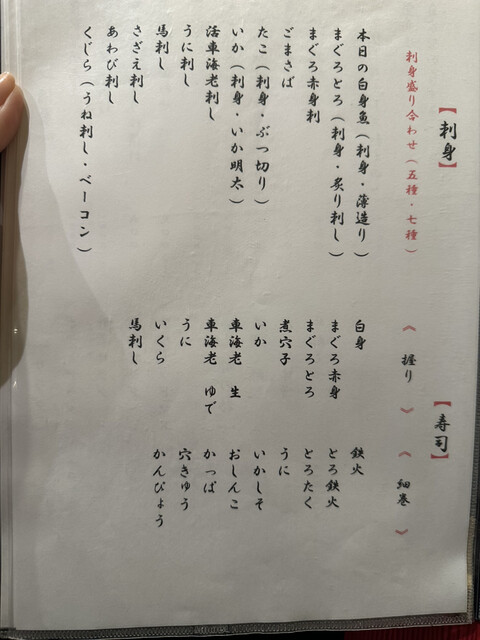 【刺身】
刺身盛り合わせ（五種・七種）
本日の白身魚（刺身・薄造り）
まぐろとろ（刺身・炙り刺し）
まぐろ赤身刺
ごまさば
たこ（刺身・ぶつ切り）
いか（刺身・いか明太）
活車海老刺し
うに刺し
馬刺し
さざえ刺し
あわび刺し
くじら（うね刺し・ベーコン）
【寿司】
《握り》
白身
まぐろ赤身
まぐろとろ
煮穴子
いか
車海老 生
車海老 ゆで
うに
いくら
馬刺し
《細巻》
鉄火
とろ鉄火
とろたく
うに
いかしそ
おしんこ
かっぱ
穴きゅう
かんぴょう